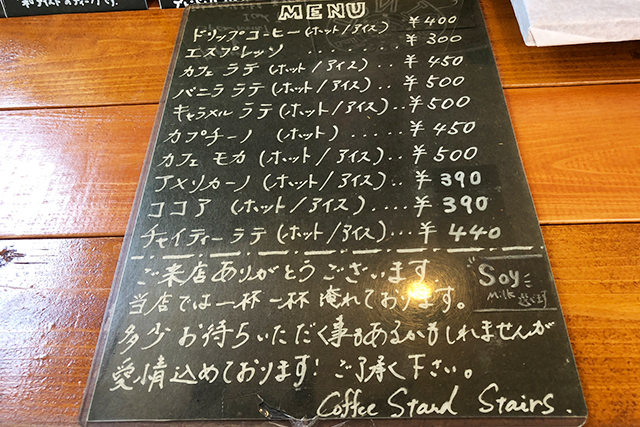 MENU
ドリップコーヒー(ホット/アイス) ¥400
エスプレッソ ¥300
カフェ ラテ(ホット/アイス)... ¥450
バニラ ラテ(ホット/アイス)... ¥500
キャラメル ラテ(ホット/アイス)... ¥500
カプチーノ (ホット) ... ¥450
カフェ モカ(ホット/アイス)... ¥500
アメリカーノ(ホット/アイス)... ¥390
ココア (ホット/アイス)... ¥390
チャイティー ラテ(ホット/アイス)... ¥440
ご来店ありがとうございます
当店では一杯一杯淹れております。
多少お待ちいただく事もあるかもしれませんが
愛情込めております! ご了承下さい。
Soy
Milk
Coffee Stand Stairs.